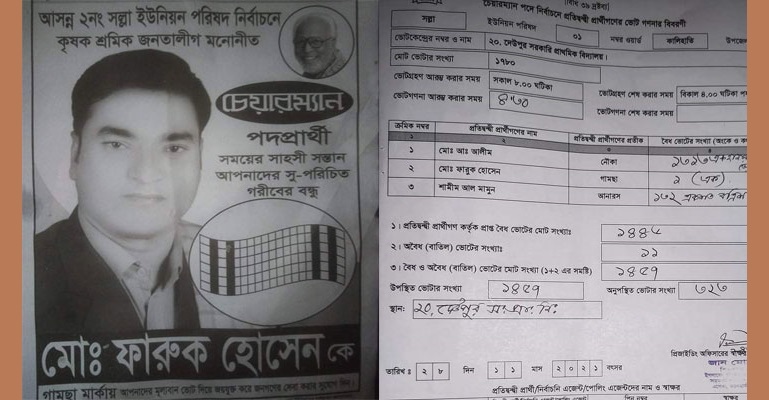 আসন্ন ২নং সল্লা ইউনিয়ন পরিষদ নির্বাচনে
কৃষক শ্রমিক জনতালীগ মনোনীত
চেয়ারম্যান
পদপ্রার্থী
সময়ের সাহসী সন্তান
আপনাদের সু-পরিচিত
গরীবের বন্ধু
মোঃ ফারুক হোসেন কে
গামছা মার্কায় আপনাদের মূল্যবান ভোট দিয়ে জয়যুক্ত করে জনগণের সেবা করার সুযোগ দিন।
চেয়ারম্যান পদে নির্বাচনে প্রতিদ্বন্দ্বী প্রার্থীগণের ভোট গণনার বিবরণী
সল্লা ইউনিয়ন পরিষদ ০১ নম্বর ওয়ার্ড কালিহাতি
ভোটকেন্দ্রের নম্বর ও নাম ২০, দেউপুর সরকারি প্রাথমিক বিদ্যালয়।
মোট ভোটার সংখ্যা ১৭৮০
ভোটগ্রহণ আরম্ভ করার সময় সকাল ৮.০০ ঘটিকা ভোটগ্রহণ শেষ করার সময় বিকাল ৪.০০ ঘটিকা
ভোটগণনা আরম্ভ করার সময় ৪:৩০ ভোটগণনা শেষ করার সময়
ক্রমিক নম্বর প্রতিদ্বন্দ্বী প্রার্থীগণের নাম প্রতিদ্বন্দ্বী প্রার্থীগণের প্রতীক বৈধ ভোটের সংখ্যা (অংকে ও
১ ২ ৩ ৪
১ মোঃ আঃ আলীম নৌকা
২ মোঃ ফারুক হোসেন গামছা ১ (এক)
৩ শামীম আল মামুন আনারস ১৩২ একশত বত্রিশ
১। প্রতিদ্বন্দ্বী প্রার্থীগণ কর্তৃক প্রাপ্ত বৈধ ভোটের মোট সংখ্যাঃ
২। অবৈধ (বাতিল) ভোটের সংখ্যাঃ ১১
৩। বৈধ ও অবৈধ (বাতিল) ভোটের মোট সংখ্যা (১+২ এর সমষ্টি)
উপস্থিত ভোটার সংখ্যা অনুপস্থিত ভোটার সংখ্যা
স্থান: ২০, দেউপুর
প্রিজাইডিং অফিসারের
তারিখ ঃ ২৮ দিন ১১ মাস ২০২১ বৎসর
প্রতিদ্বন্দ্বী প্রার্থী/নির্বাচনি এজেন্ট/পোলিং এজেন্টদের নাম ও স্বাক্ষর